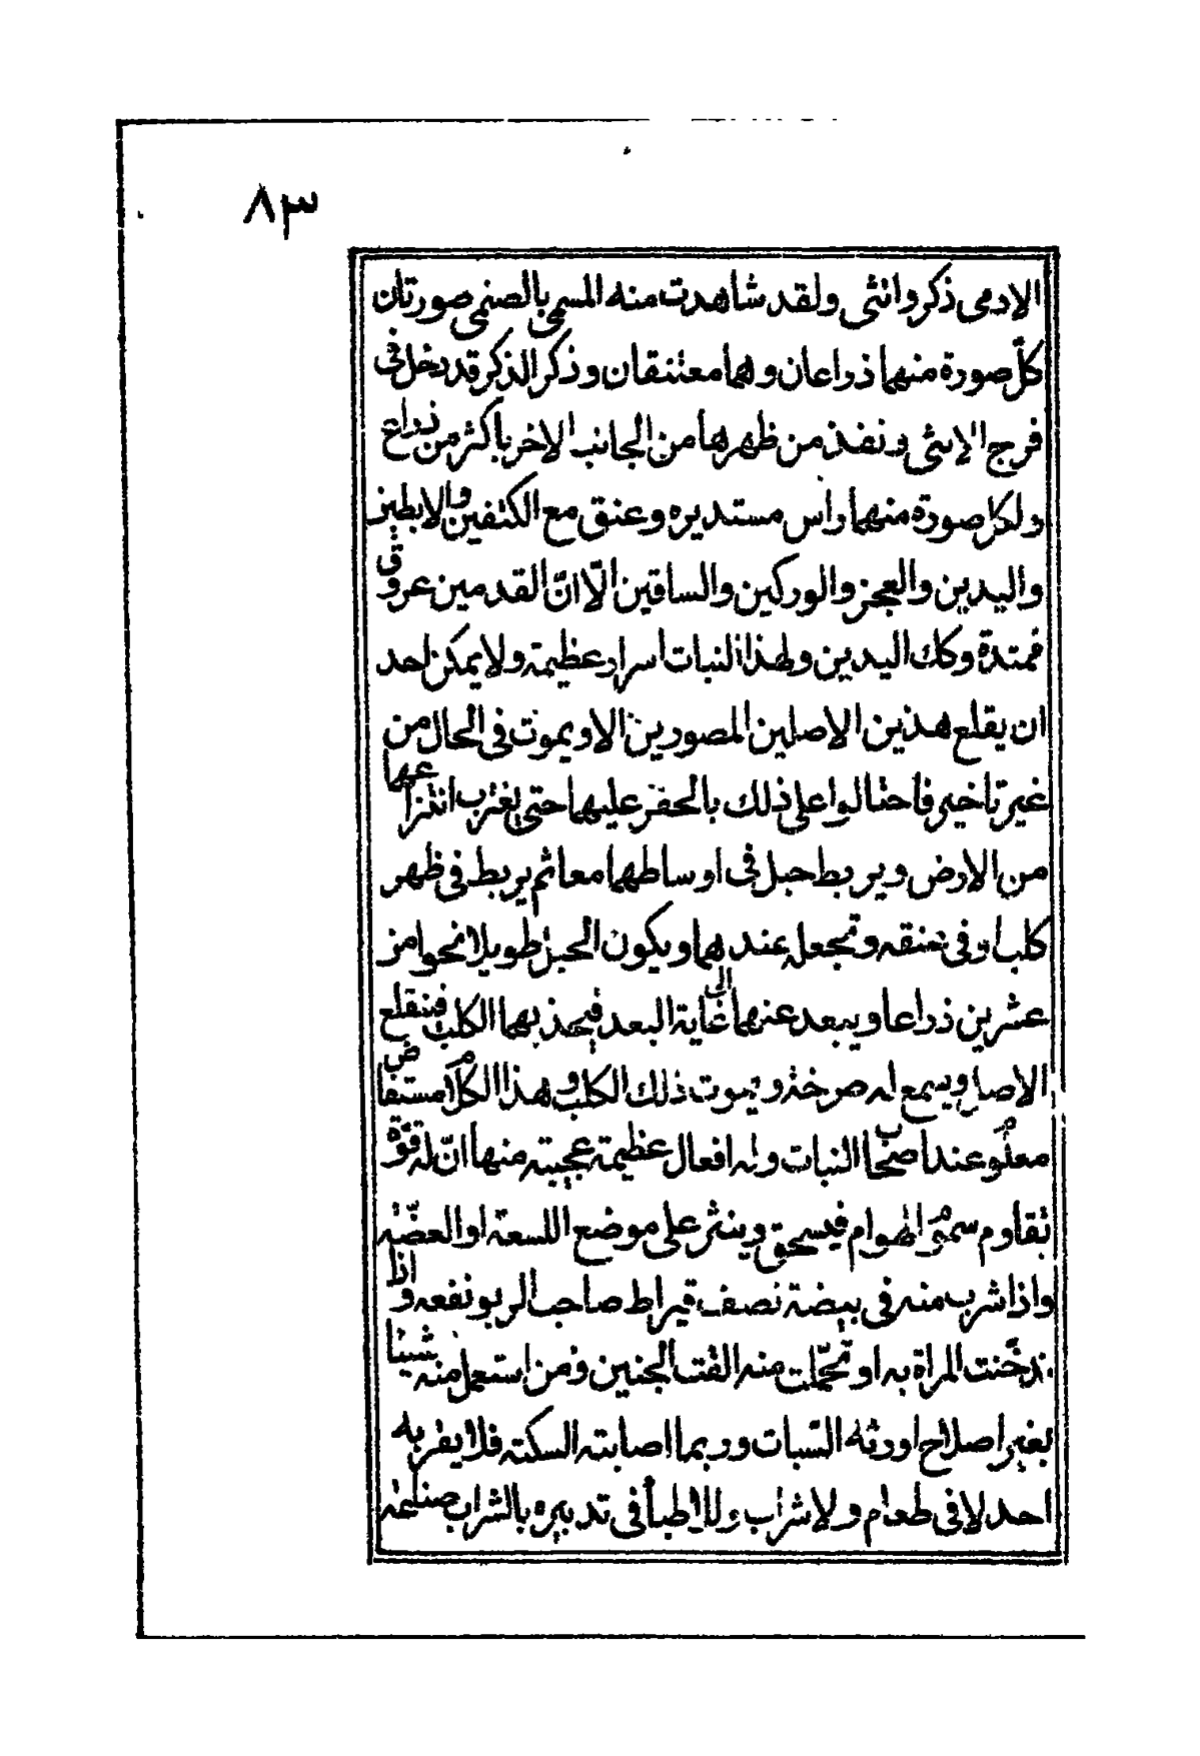 ٨٣
الادمى ذكر وانثى ولقد شاهدت منه المسمى بالصنمى صورتان
كلّ صورة منهما ذراعان وهما معتنقان وذكر الذكر قد دخل فى
فرج الانثى ونفذ من ظهرها من الجانب الاخر باكثر من ذراع
ولكل صورة منهما راس مستديره وعنق مع الكتفين والابطين
واليدين والعجز والوركين والساقين الّا انّ القدمين عروق
ممتدة وكك اليدين ولهذا النبات اسرار عظيمة ولا يمكن احد
ان يقلع هذين الاصلين المصورين الا ويموت فى الحال من
غير تاخير فاحتالوا على ذلك بالحفر عليهما حتى يقرب انتزاعهما
من الارض ويربط حبل فى اوساطهما معا ثم يربط فى ظهر
كلب او فى عنقه وتجعله عندهما ويكون الحبل طويلا نحوا من
عشرين ذراعا ويبعد عنهما الى غاية البعد فيجذبهما الكلب فينقلع
الاصل ويسمع له صرخة ويموت ذلك الكلب وهذا الكلام مستفاض
معلوم عند اصحاب النبات وله افعال عظيمة عجيبة منها انّ له قوّة
تقاوم سموم الهوام فيسحق وينثر على موضع اللسعة او العضّة
واذا شرب منه فى بيضة نصف قيراط صاحب الربو نفعه واذا
تدخّنت المراة به او تحمّلت منه القت الجنين ومن استعمل منه شيئا
بغير اصلاح اورثه السّبات وربما اصابته السكتة فلا يغر به
احد لا فى طعام ولا شراب وللاطبأ فى تدبيره بالشراب